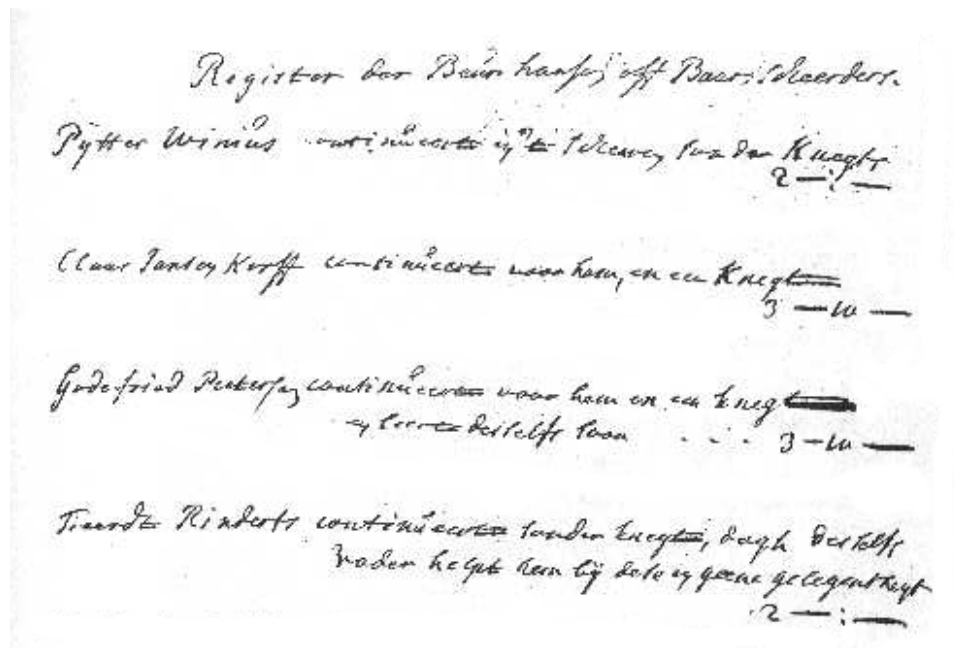 Register der Beunhasen off Baerscheerders.
Pytter Winius continueert in 't scheeren sonder Knegt
2 — : —
Claas Jansen Korff continueert voor hem, en een Knegt
3 — 10 —
Godefried Petersen continueert voor hem en een knegt
en leert deszelfs soon . . . 3 — 10 —
Tieerdt Rinderts continueert sonder knegt, dogh deszelfs
vader helpt hem bij dese en geene gelegentheyt
2 — : —